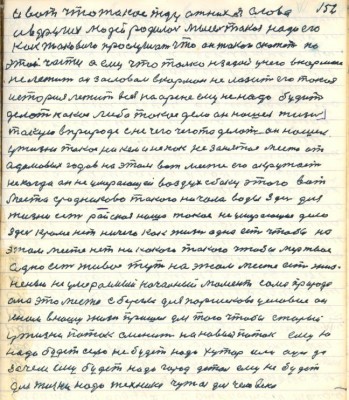 156
и вот что такое жду от них я слова
и других людей родился мысль такая надо его
как такового прослушать что он такой скажет по
этой части а ему что только и задой у него в кармане
не летит он за словом в карман не лазит его такая
история летит вся на арене ему не надо будет
делать какое либо такое дело он нашел жизнь
такую в природе с не чего чего то делать он нашел
у жизни такое на нем и не как не занятое место от
адамовых годов на этом вот месте его окружает
никогда он не умирающий воздух с боку этого вот
места средниково такого начала воды Здесь для
жизни есть райская наша такое не умирающее дело
Здесь кроме нет ничего как жизнь одна есть чтобы на
этом месте нет ни какого такого чтобы мертвое
одно есть живое тут на этом месте есть жиз-
ненный не умерающий начальный момент сама природа
она это место с берегла для Паршикова целовие он
жизни пришел для того чтобы старый
у жизни поток сменить на новый поток ему ю
надо будет село не будет надо хутор или аул да
зачем ему будет надо город детям ему не будет
для жизни надо техника чужая для человека